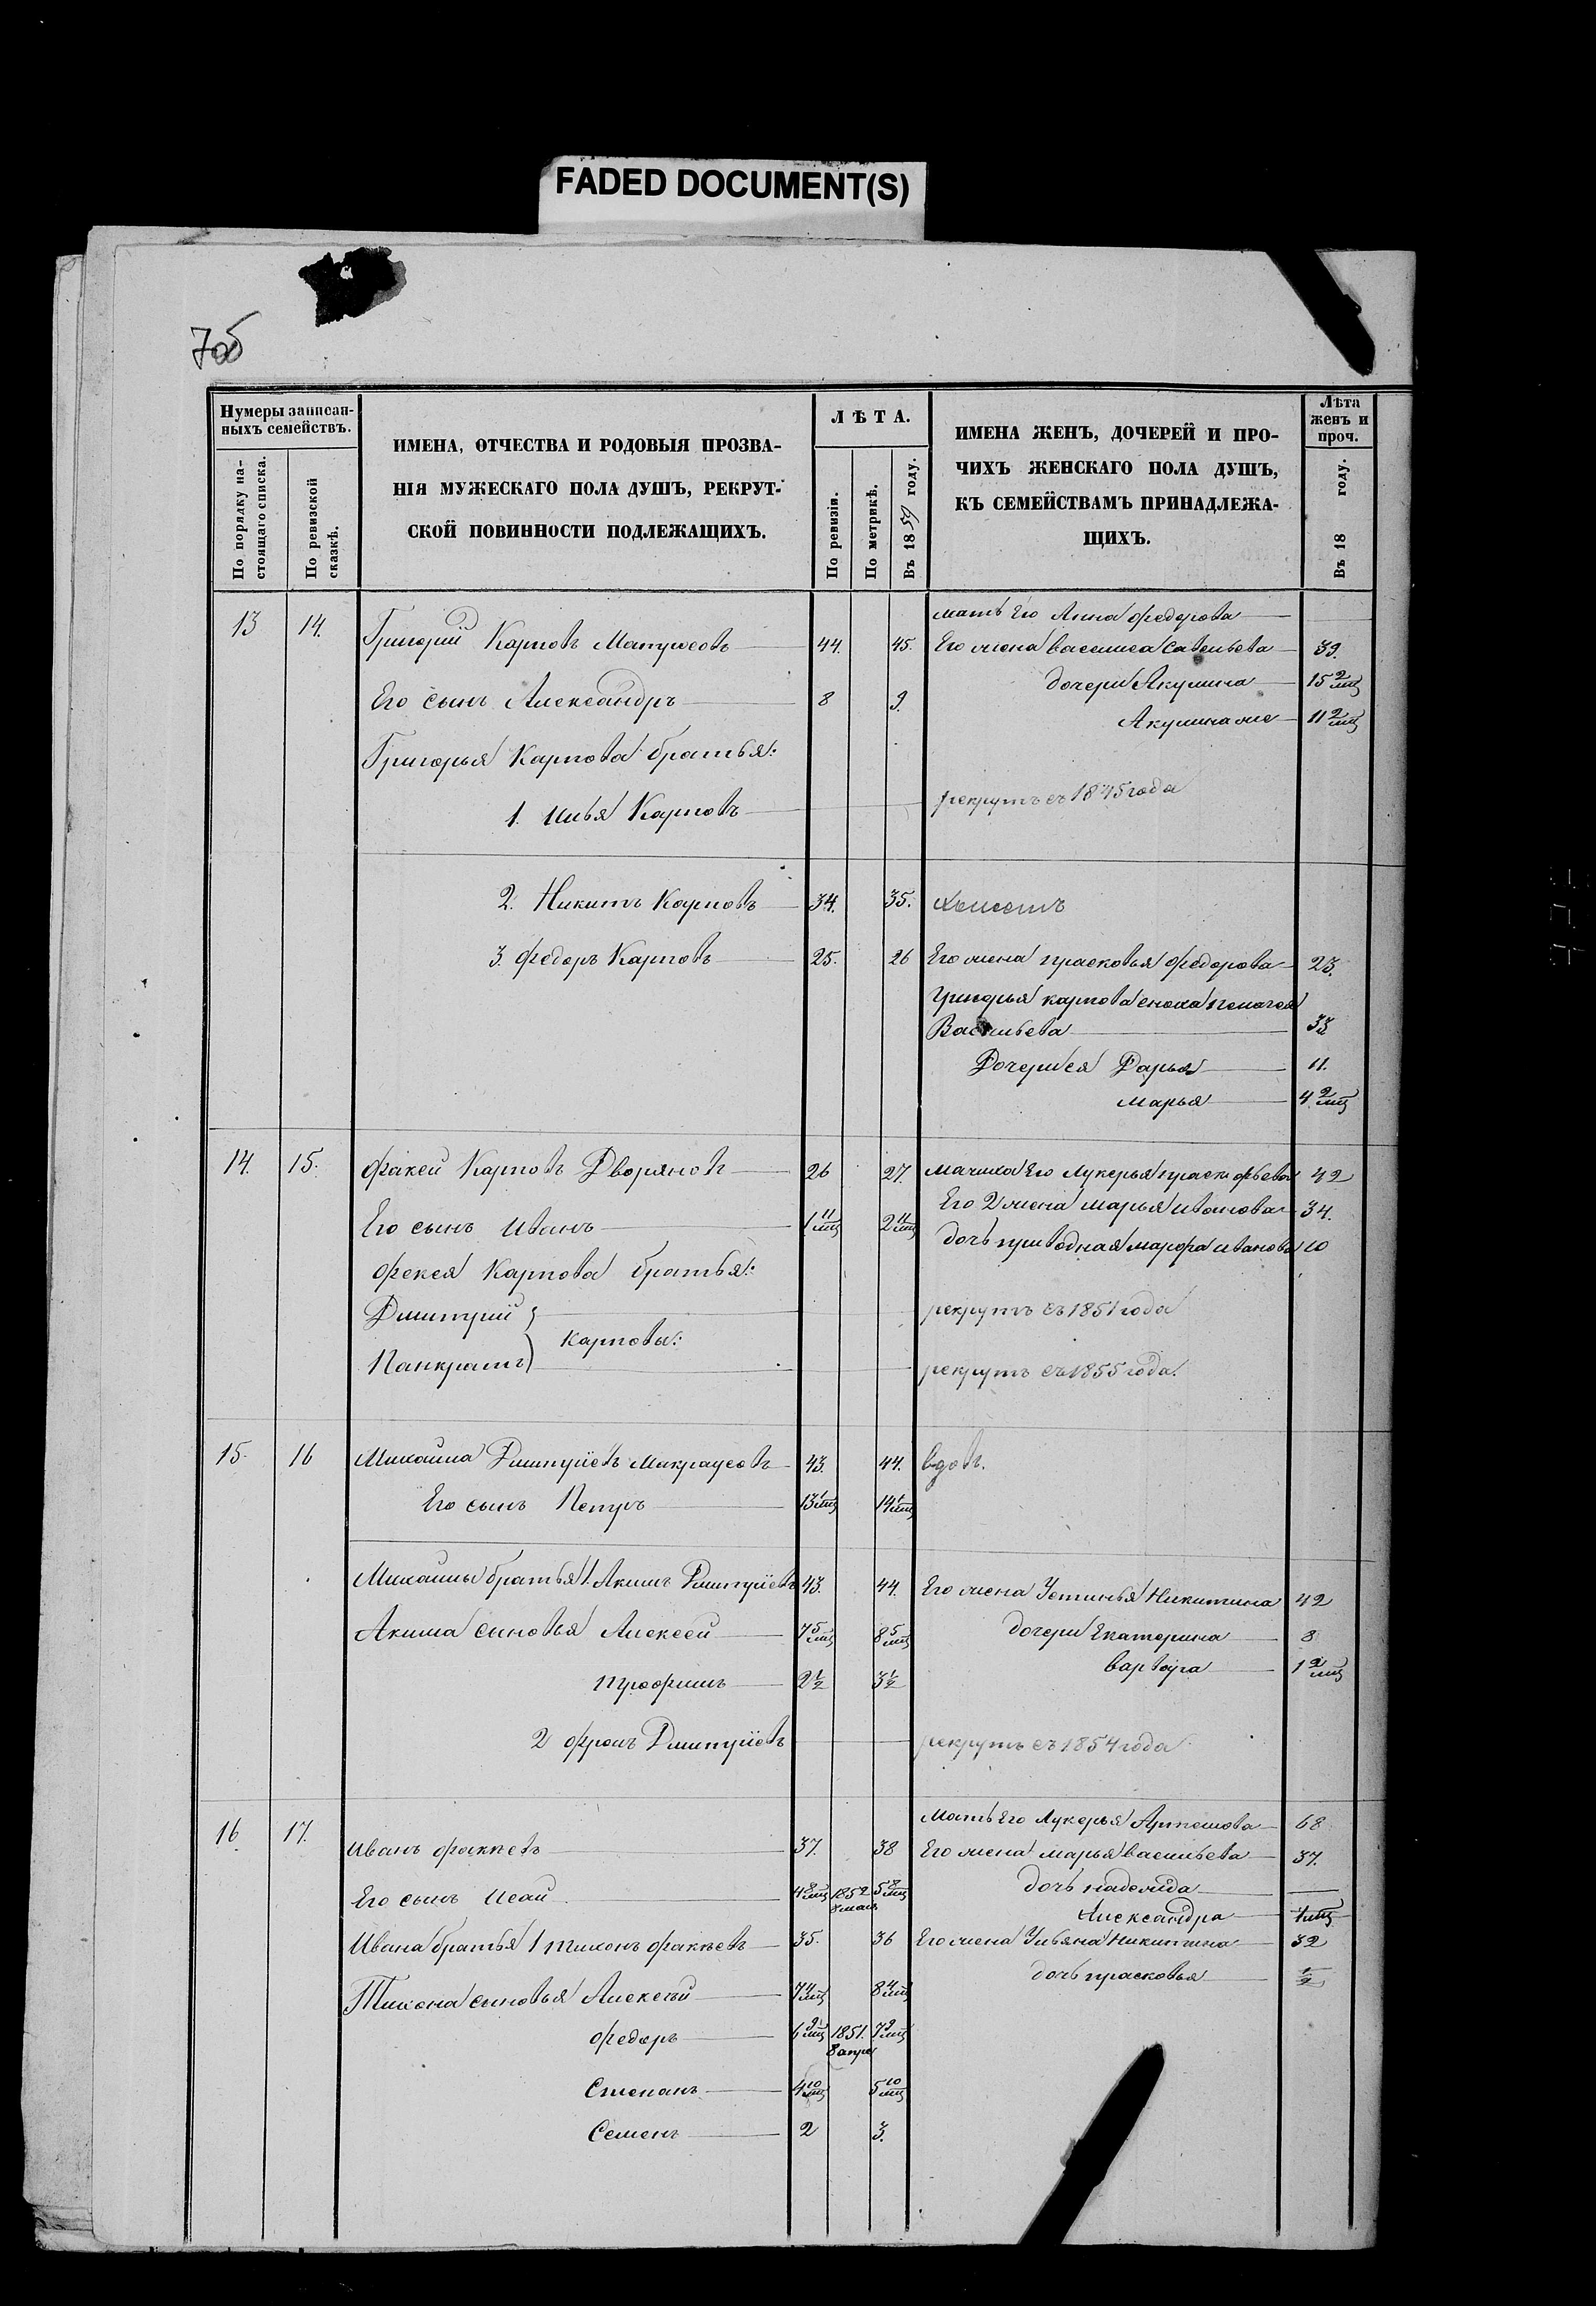 FADED DOCUMENT(S)
7об
Нумеры записан-
ныхъ семействъ.
По порядку на-
стоящаго списка.
По ревизской
сказкѣ.
ИМЕНА, ОТЧЕСТВА И РОДОВЫЯ ПРОЗВА-
НІЯ МУЖЕСКАГО ПОЛА ДУШЪ, РЕКРУТ-
СКОЙ ПОВИННОСТИ ПОДЛЕЖАЩИХЪ.
ЛѢТА.
По ревизіи.
По метрикѣ.
Въ 1859 году.
ИМЕНА ЖЕНЪ, ДОЧЕРЕЙ И ПРО-
ЧИХЪ ЖЕНСКАГО ПОЛА ДУШЪ,
КЪ СЕМЕЙСТВАМЪ ПРИНАДЛЕЖА-
ЩИХЪ.
Лѣта
женъ и
проч.
Въ 18 году.
мать Его Анна федорова
13 14. Григорий Карповъ 44. 45. Его жена василиса савельева 39.
Его сынъ Александръ 8 9. дочери Акулина 15 2/мц
Акулина же 11 2/мц
Григорья Карпова братья:
1. Илья Карповъ рекрутъ съ 1845 года
2. Никитъ Карповъ 34. 35. холостъ
3. федоръ Карповъ 25. 26 Его жена прасковья федорова 23.
григорья карпова сноха пелагея
Васильева 33
Дочери ея Дарья 11.
марья 4 2/мц
14. 15. Карповъ Дворяновъ 26 27. мачиха Его лукерья 42
Его сынъ Иванъ 1 11/мц 2 11/мц Его 2 жена марья 34.
дочь приводная марфа иванова 10
Карпова братья:
Дмитрий рекрутъ съ 1851 года
Карповы:
Панкратъ рекрутъ съ 1855 года.
15. 16 Михайла Дмитріевъ 43. 44. вдовъ.
Его сынъ Петръ 13 1/мц 14 1/мц
Михайлы братья 1. Акимъ Дмитріевъ 43. 44. Его жена Устинья Никитина 42
Акима сыновья Алексей 7 5/мц 8 5/мц дочери Екатерина 8
трофимъ 2 1/2 3 1/2 варвара 1 2/мц
2 фролъ Дмитріевъ рекрутъ съ 1854 года
мать Его лукерья Артемова 68
16. 17. Иванъ 37. 38 Его жена марья васильева 37.
Его сынъ Исай 4 8/мц 1852 5 8/мц дочь надежда
Александра
Ивана братья 1 тихонъ 35. 36 Его жена Ульяна Никитина 32
дочь прасковья 1/2
Тихона сыновья Алексѣй 7 4/мц 8 4/мц
федоръ 6 9/мц 1851. 7 9/мц
8 апре
Степанъ 4 10/мц 5 10/мц
Семенъ 2 3.